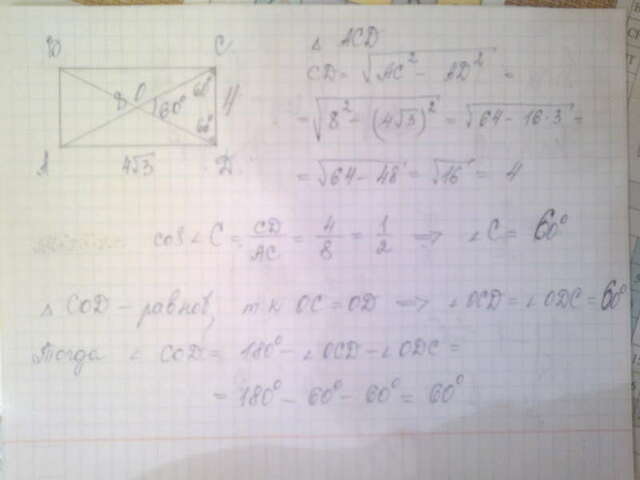 B C
8 O 60° 60° 60° 4
A 4√3 D
△ ACD
CD = √AC² - AD² =
= √8² - (4√3)² = √64 - 16·3 =
= √64 - 48 = √16 = 4
cos ∠C = CD/AC = 4/8 = 1/2 ⟹ ∠C = 60°
△ COD - равноб, т к OC = OD ⟹ ∠OCD = ∠ODC = 60°
Тогда ∠ COD = 180° - ∠OCD - ∠ODC =
= 180° - 60° - 60° = 60°